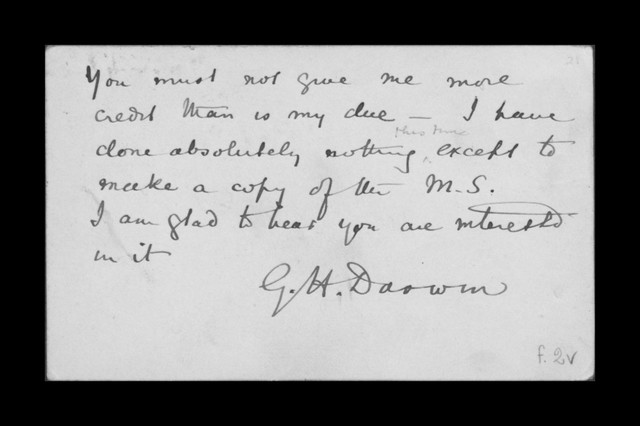 You must not give me more
credit than is my due — I have
this time
done absolutely nothing, except to
make a copy of the M.S.
I am glad to hear you are interested
in it
G. H. Darwin
f. 2v